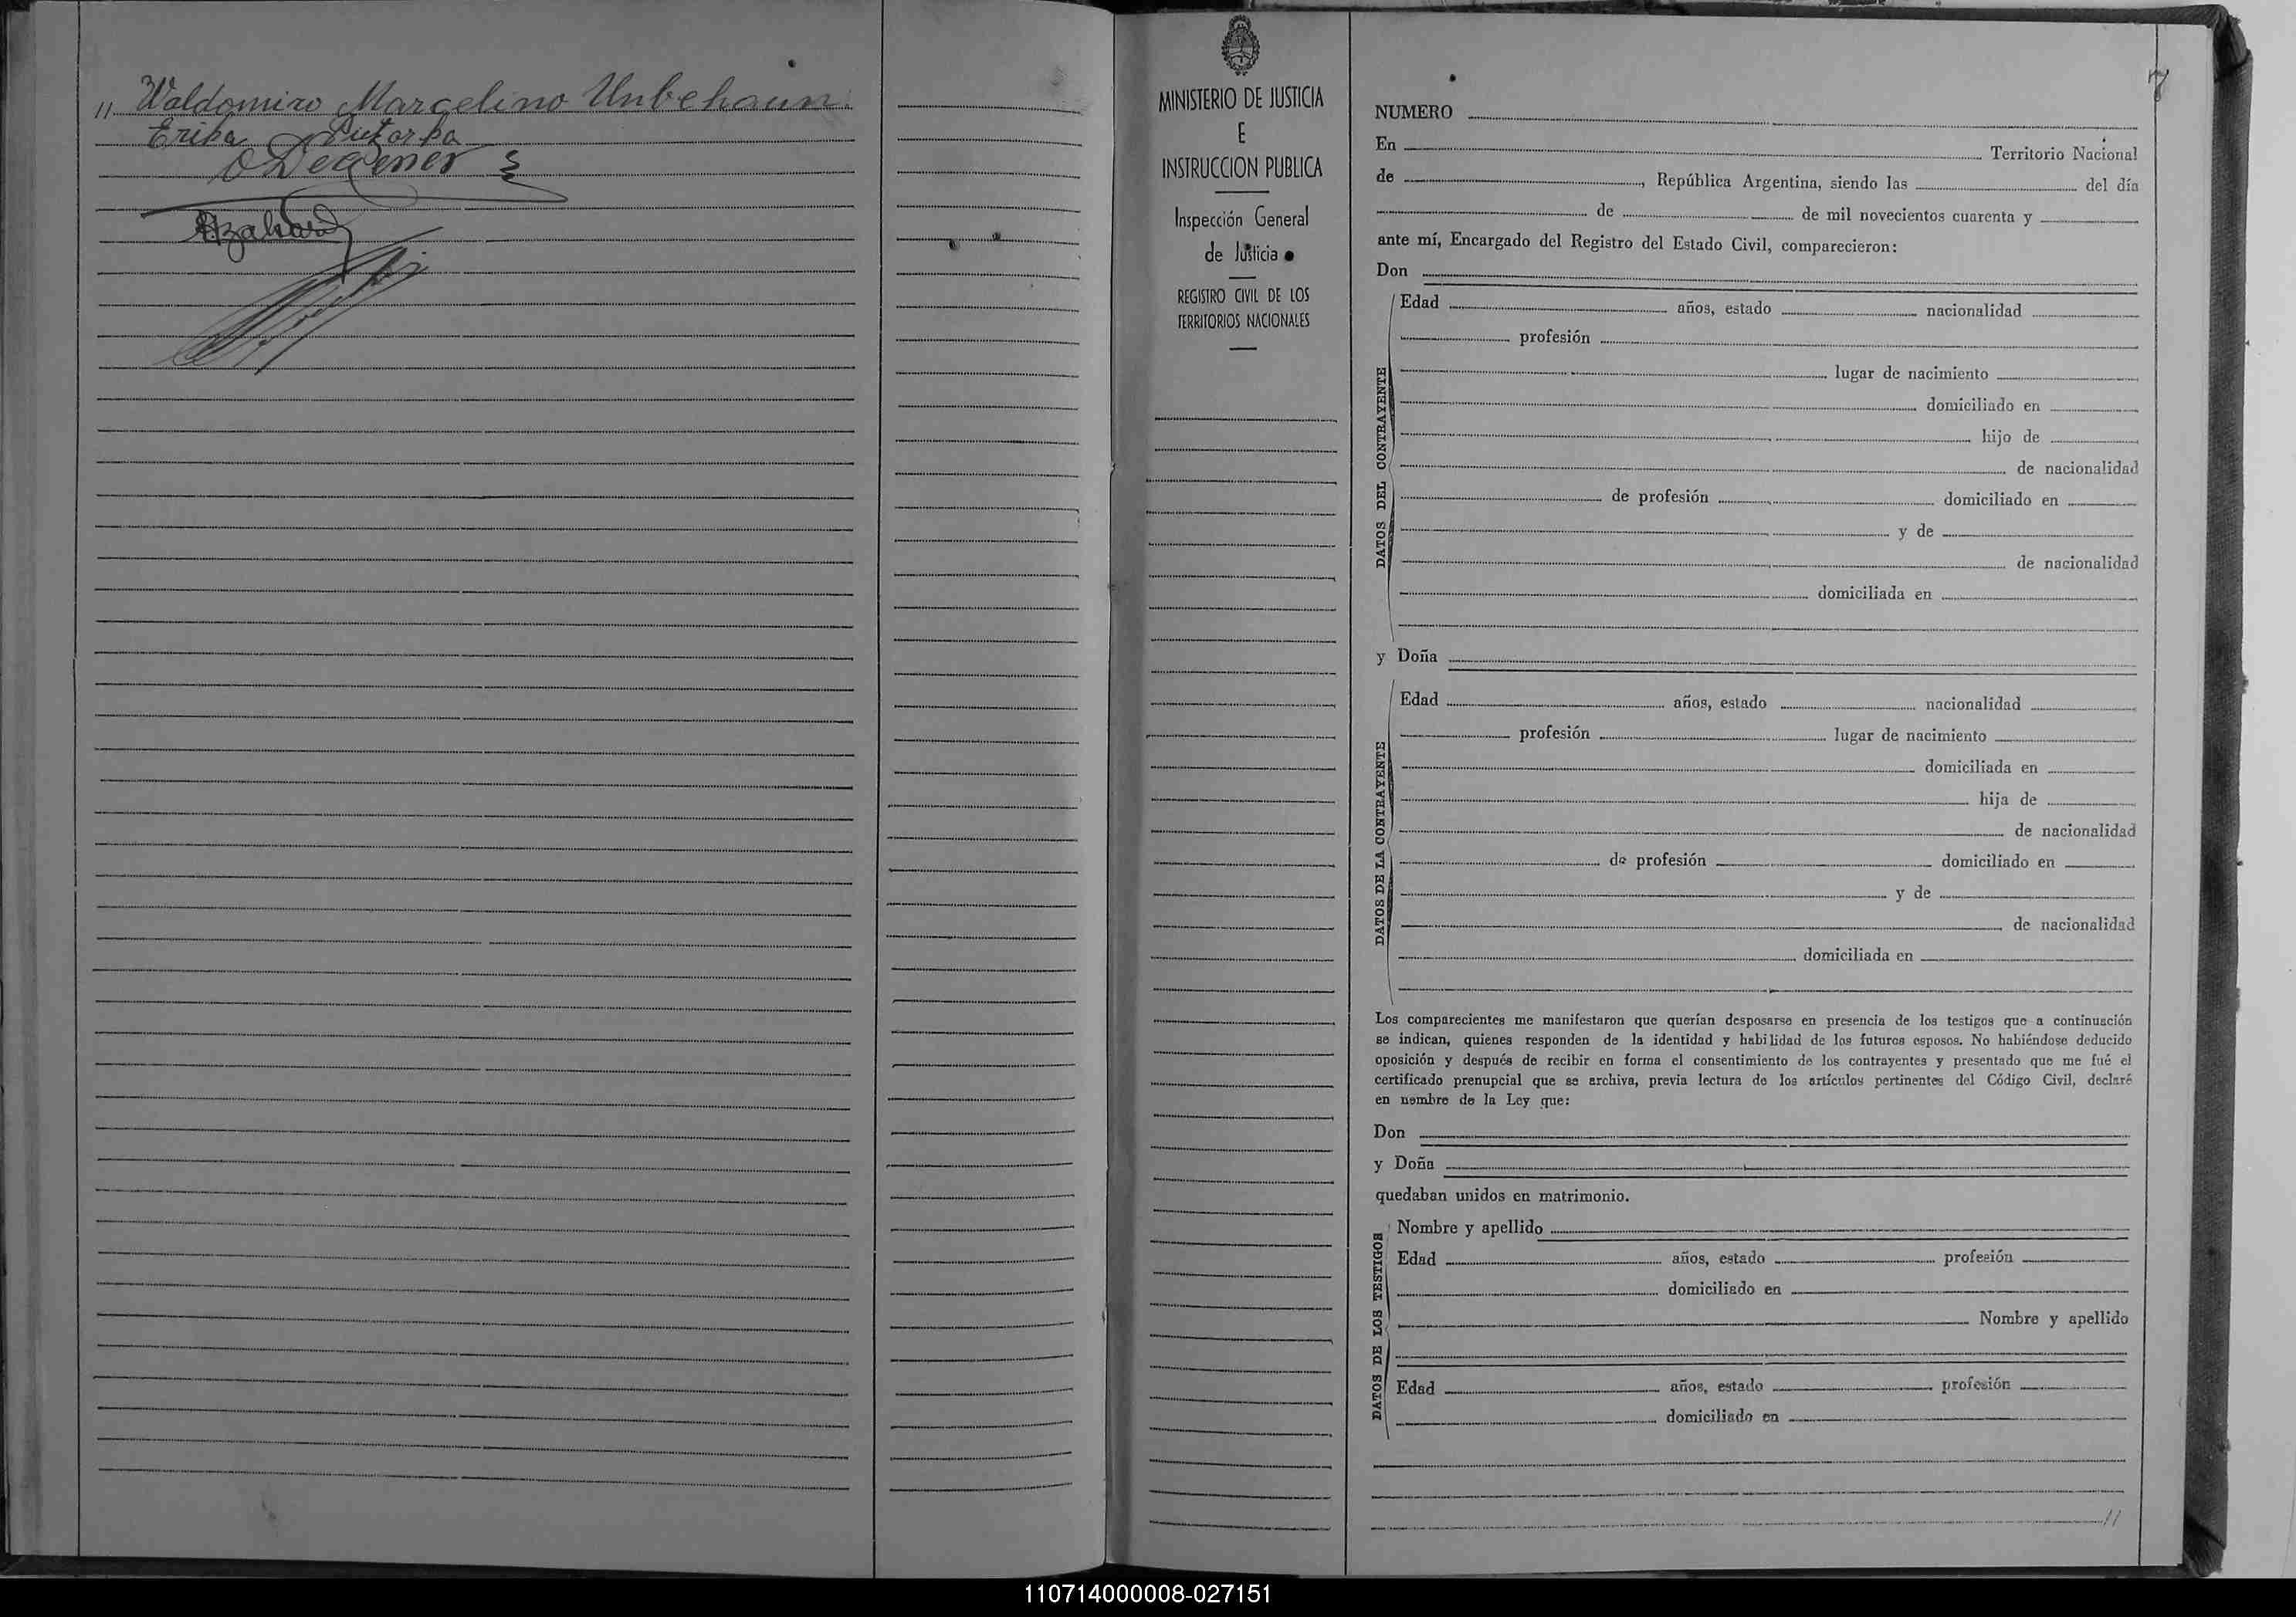 11 Waldomiro Marcelino Unbehaun.
Erika
O Degener
MINISTERIO DE JUSTICIA
E
INSTRUCCION PUBLICA
Inspección General
de Justicia
REGISTRO CIVIL DE LOS
TERRITORIOS NACIONALES
7
NUMERO
En Territorio Nacional
de , República Argentina, siendo las del día
de de mil novecientos cuarenta y
ante mí, Encargado del Registro del Estado Civil, comparecieron:
Don
DATOS DEL CONTRAYENTE
Edad años, estado nacionalidad
profesión
lugar de nacimiento
domiciliado en
hijo de
de nacionalidad
de profesión domiciliado en
y de
de nacionalidad
domiciliada en
y Doña
DATOS DE LA CONTRAYENTE
Edad años, estado nacionalidad
profesión lugar de nacimiento
domiciliada en
hija de
de nacionalidad
de profesión domiciliado en
y de
de nacionalidad
domiciliada en
Los comparecientes me manifestaron que querían desposarse en presencia de los testigos que a continuación
se indican, quienes responden de la identidad y habilidad de los futuros esposos. No habiéndose deducido
oposición y después de recibir en forma el consentimiento de los contrayentes y presentado que me fué el
certificado prenupcial que se archiva, previa lectura de los artículos pertinentes del Código Civil, declaré
en nombre de la Ley que:
Don
y Doña
quedaban unidos en matrimonio.
DATOS DE LOS TESTIGOS
Nombre y apellido
Edad años, estado profesión
domiciliado en
Nombre y apellido
Edad años, estado profesión
domiciliado en
11
110714000008-027151